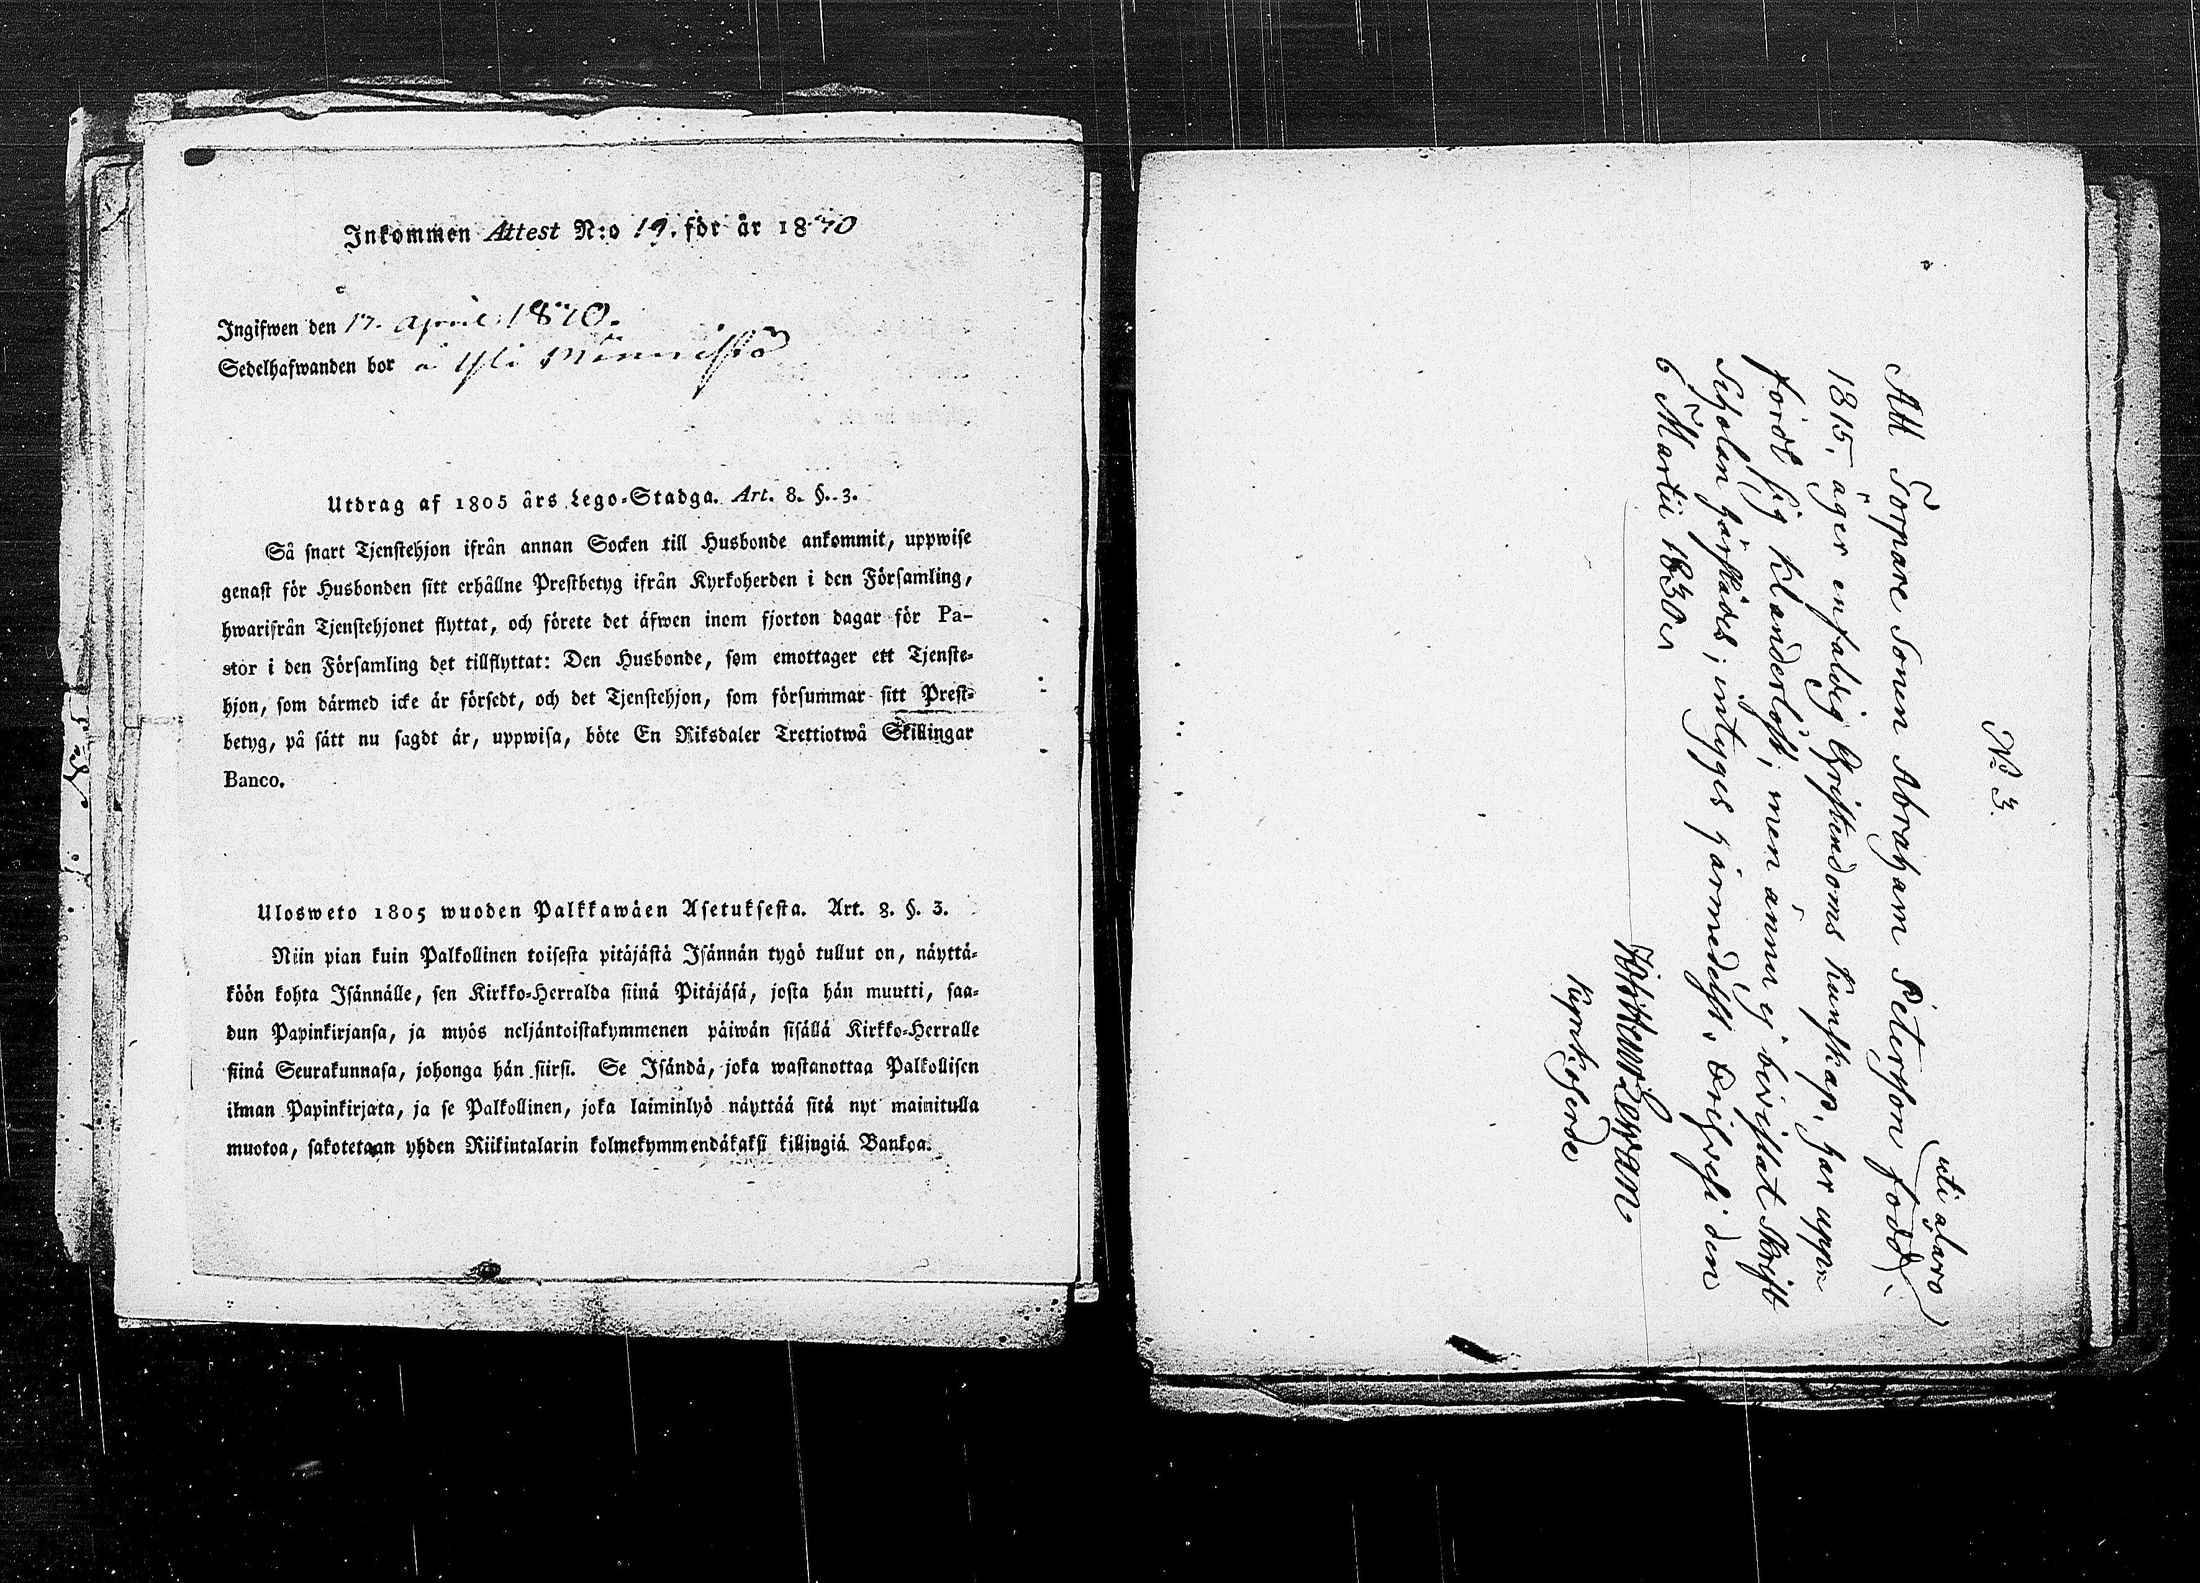 Inkommen Attest N:o 19. för år 1870
Ingifwen den 17. April 1870.
Sedelhafwanden bor à Yli Männistö
Utdrag af 1805 års Lego-Stadga. Art. 8. §. 3.
Så snart Tjenstehjon ifrån annan Socken till Husbonde ankommit, uppwise
genast för Husbonden sitt erhållne Prestbetyg ifrån Kyrkoherden i den Församling,
hwarifrån Tjenstehjonet flyttat, och förete det äfwen inom fjorton dagar för Pa-
stor i den Församling det tillflyttat: Den Husbonde, som emottager ett Tjenste-
hjon, som därmed icke är försedt, och det Tjenstehjon, som försummar sitt Prest-
betyg, på sätt nu sagdt är, uppwisa, böte En Riksdaler Trettiotwå Skillingar
Banco.
Ulosweto 1805 wuoden Palkkawäen Asetuksesta. Art. 8. §. 3.
Niin pian kuin Palkollinen toisesta pitäjästä Isännän tygö tullut on, näyttä-
köön kohta Isännälle, sen Kirkko-Herralda siinä Pitäjäsä, josta hän muutti, saa-
dun Papinkirjansa, ja myös neljäntoistakymmenen päiwän sisällä Kirkko-Herralle
siinä Seurakunnasa, johonga hän siirsi. Se Isändä, joka wastanottaa Palkollisen
ilman Papinkirjata, ja se Palkollinen, joka laiminlyö näyttää sitä nyt mainitulla
muotoa, sakotetaan yhden Riikintalarin kolmekymmendäkaksi killingiä Bankoa.
No 3.
Att Torpare Sonen Abraham Petersson född
1815, äger enfaldig Christendoms kunskap, har upp-
fördt sig klanderlöst, men ännu ej bevistat Skrift
Scholan härstädes; intyges härmedelst,
den
6 Martii 1830
Kyrkoherde